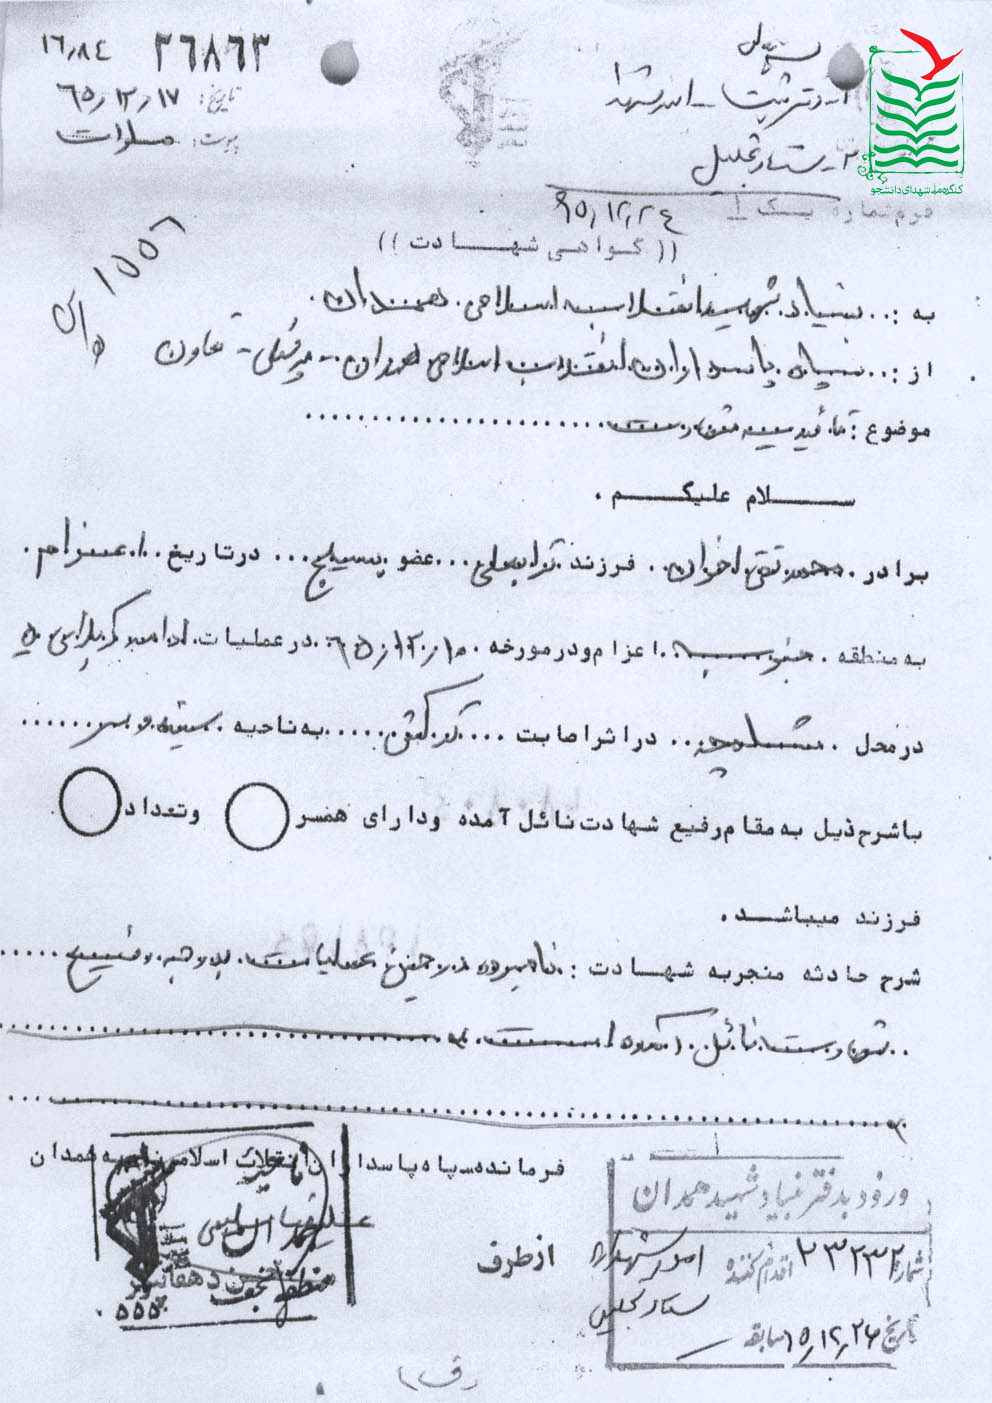 ۱۶٫۸۴ ۳۶۸۶۳
تاریخ: ۶۵٫۱۲٫۱۷
پیوست:
۲- ستاد تجلیل
کنگره ملی شهدای دانشجو
فرم شماره یک
۶۵٫۱۲٫۲۴
((گواهی شهادت))
۱۵۵۶
به: بنیاد شهید انقلاب اسلامی همدان
از: سپاه پاسداران انقلاب اسلامی همدان - پرسنلی - تعاون
موضوع: تائیدیه شهادت
سلام علیکم.
برادر محمد تقی اخوان فرزند ترابعلی عضو بسیج در تاریخ اعزام
به منطقه جنوب اعزام و در مورخه ۶۵٫۱۲٫۱۰ در عملیات ادامه کربلای ۵
در محل شلمچه در اثر اصابت ترکش به ناحیه سینه و سر
با شرح ذیل به مقام رفیع شهادت نائل آمده و دارای همسر و تعداد
فرزند میباشد.
شرح حادثه منجر به شهادت: نامبرده در حین عملیات بدرجه رفیع
شهادت نائل آمده است.
فرمانده سپاه پاسداران انقلاب اسلامی ناحیه همدان
از طرف
ورود بدفتر بنیاد شهید همدان
شماره ۲۳۲۳۲ اقدام کننده امور شهدا
ستاد تجلیل
تاریخ ۶۵٫۱۲٫۲۶ سابقه